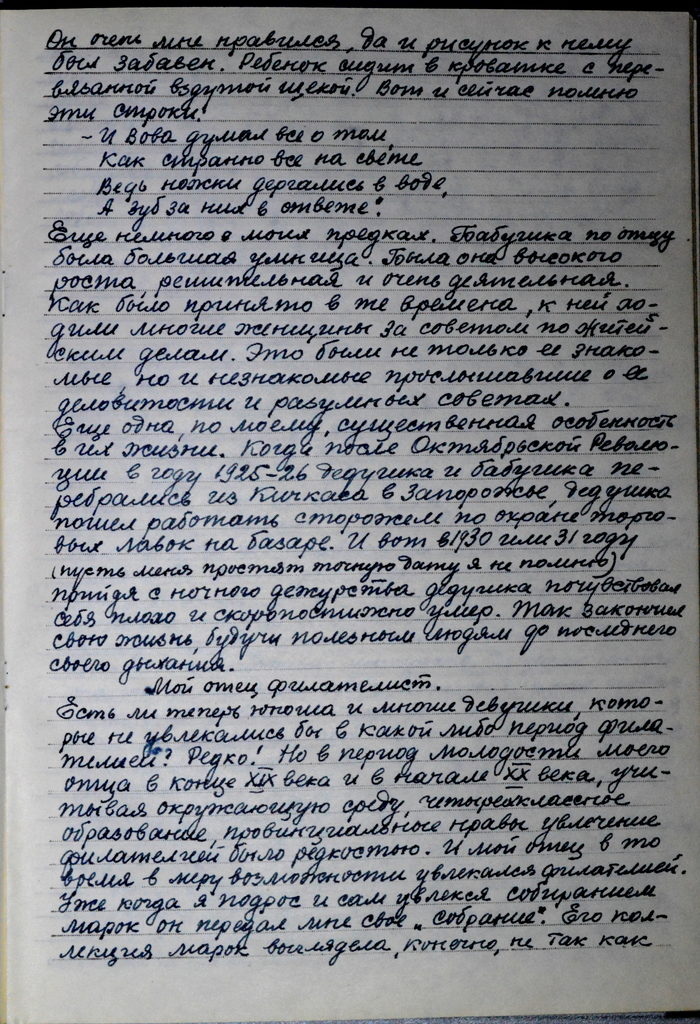 Он очень мне нравился, да и рисунок к нему
был забавен. Ребенок сидит в кроватке с пере-
вязанной вздутой щекой. Вот и сейчас помню
эти строки:
- И Вова думал все о том,
Как странно все на свете
Ведь ножки дергались в воде,
А зуб за них в ответе".
Еще немного о моих предках. Бабушка по отцу
была большая умница. Была она высокого
роста, решительная и очень деятельная.
Как было принято в те времена, к ней хо-
дили многие женщины за советом по житей-
ским делам. Это были не только ее знако-
мые, но и незнакомые прослышавшие о ее
деловитости и разумных советах.
Еще одна, по моему, существенная особенность
в их жизни. Когда после Октябрьской Револю-
ции в году 1925-26 дедушка и бабушка пе-
ребрались из Кичкаса в Запорожье, дедушка
пошел работать сторожем по охране торго-
вых лавок на базаре. И вот в 1930 или 31 году
(пусть меня простят точную дату я не помню)
прийдя с ночного дежурства дедушка почувствовал
себя плохо и скоропостижно умер. Так закончил
свою жизнь, будучи полезным людям до последнего
своего дыхания.
Мой отец филателист.
Есть ли теперь юноша и многие девушки, кото-
рые не увлекались бы в какой либо период фила-
телией? Редко! Но в период молодости моего
отца в конце XIX века и в начале XX века, учи-
тывая окружающую среду, четырехклассное
образование, провинциальные нравы увлечение
филателией было редкостью. И мой отец в то
время в меру возможности увлекался филателией.
Уже когда я подрос и сам увлекся собиранием
марок он передал мне свое „собрание". Его кол-
лекция марок выглядела, конечно, не так как